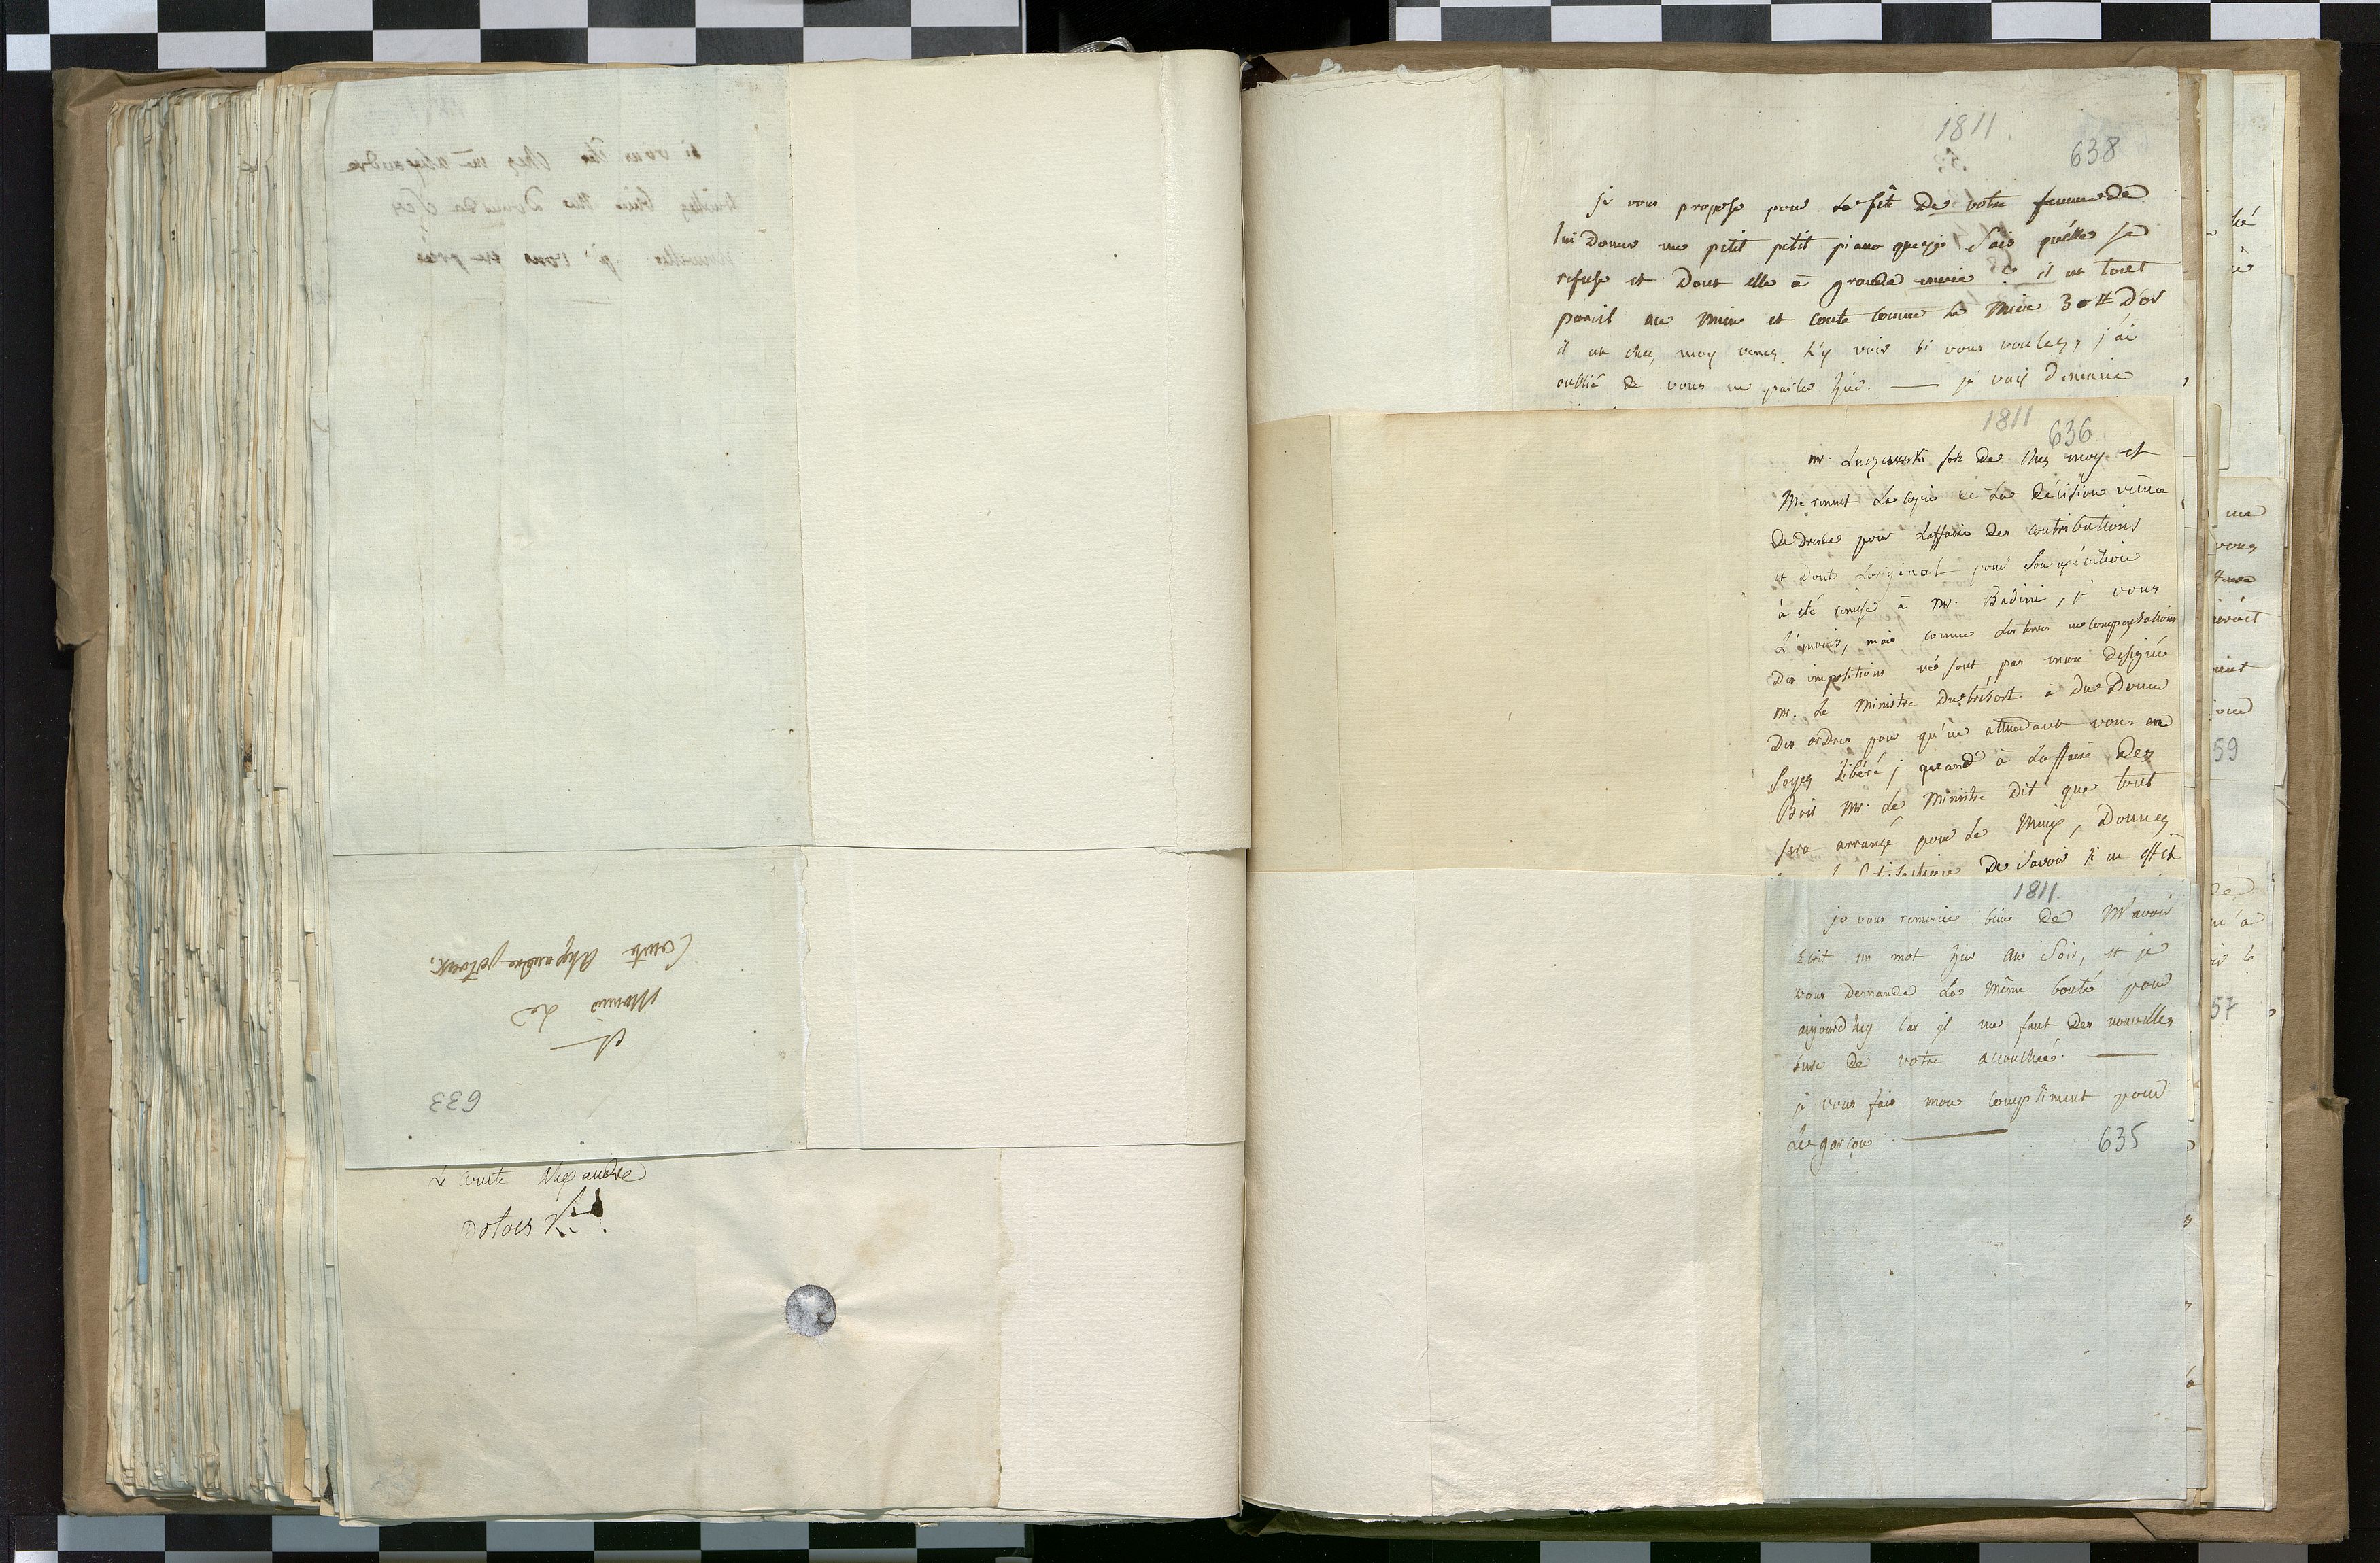 à
Monsieur Le
Comte Alexandre potocki.
633
Le comte Alexandre
Potocki
1811
638
je vous propose pour la fête de votre femme de
lui donner un petit petit piano que je sais qu'elle se
refuse et dont elle à grande envie il est tout
pareil au mien et coute comme le mien 30# d'or
il est chez moy venez l'y voir si vous voulez, j'ai
oublié de vous en parler hier. — je vais
1811
636
mr. Luszczewski sort de chez moy et
Me remet La copie de La Décision venue
de Dresde pour L'affaire des contributions
et dont L'original pour son exécution
à été remise à Mr. Badeni, je vous
L'envois, mais comme Les terres en compensations
des impositions ne sont pas encore designée
mr. Le Ministre du trésort à du donné
des ordres pour qu'en attendant vous en
soyez libéré; quand à L'affaire des
Bois Mr. Le Ministre dit que tout
sera arrangé pour le mieux, Donnez
De savoir si en effet
1811
je vous remercie bien de M'avoir
écrit un mot hier au soir, et je
vous demande La Même bonté pour
aujourdhuy car il me faut des nouvelles
sure de votre accouchée. —
je vous fais mon compliment pour
Le garçon. —
635
59
57